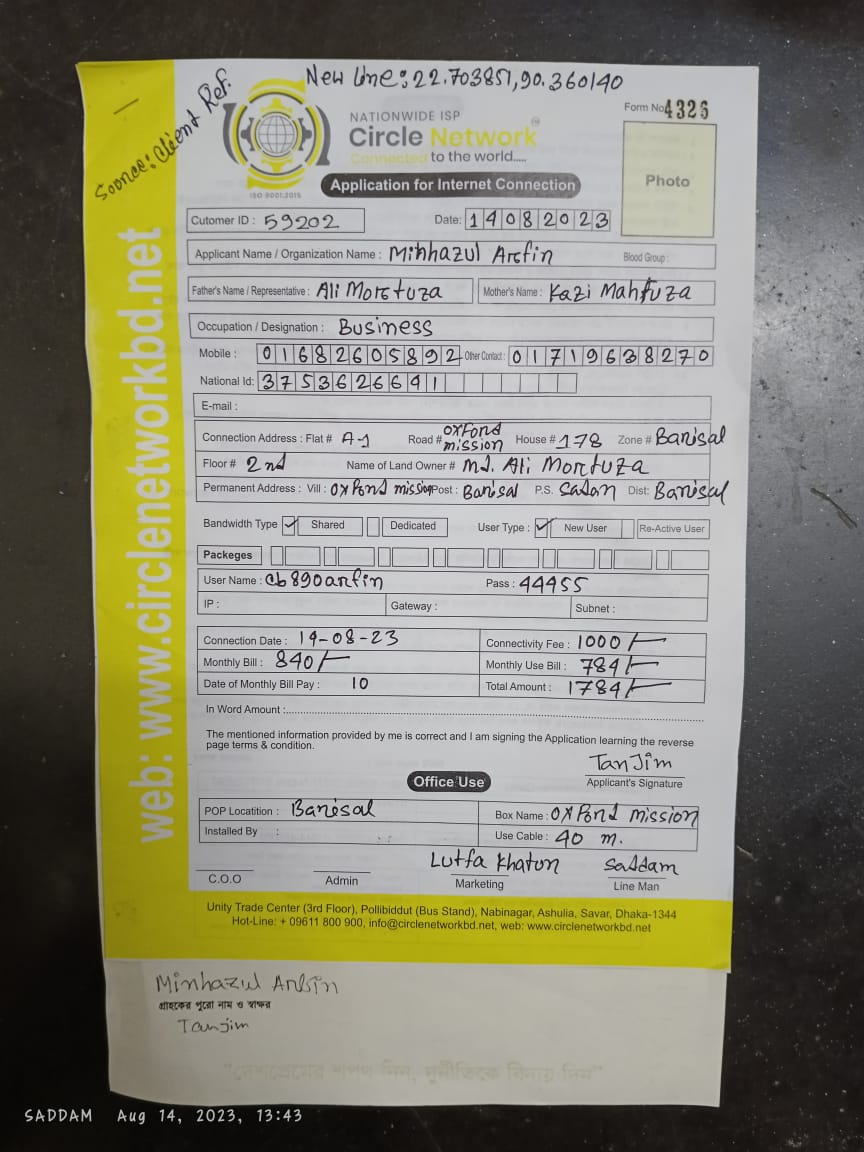 New Line: 22.703851, 90.360140
Soonce: Client Ref.
Form No 4326
NATIONWIDE ISP
Circle Network™
Connected to the world.....
ISO 9001:2015
Photo
Application for Internet Connection
Cutomer ID : 59202 Date: 14082023
Applicant Name / Organization Name : Minhazul Arefin Blood Group :
Father's Name / Representative : Ali Morotuza Mother's Name : Kazi Mahfuza
Occupation / Designation : Business
Mobile : 01682605892 Other Contact : 01719638270
National Id: 3753626641
E-mail :
Connection Address : Flat # A-1 Road # oxford mission House # 178 Zone # Barisal
Floor # 2nd Name of Land Owner # Md. Ali Mortuza
Permanent Address : Vill : oxford mission Post : Barisal P.S. Sadar Dist: Barisal
Bandwidth Type ✓ Shared Dedicated User Type : ✓ New User Re-Active User
Packeges
User Name : cb890arfin Pass : 44455
IP : Gateway : Subnet :
Connection Date : 14-08-23 Connectivity Fee : 1000/-
Monthly Bill : 840/- Monthly Use Bill : 784/-
Date of Monthly Bill Pay : 10 Total Amount : 1784/-
In Word Amount :
The mentioned information provided by me is correct and I am signing the Application learning the reverse
page terms & condition.
TanJim
Applicant's Signature
Office Use
POP Locatition : Barisal Box Name : Oxford mission
Installed By : Use Cable : 40 m.
Lutfa Khaton Saddam
C.O.O Admin Marketing Line Man
Unity Trade Center (3rd Floor), Pollibiddut (Bus Stand), Nabinagar, Ashulia, Savar, Dhaka-1344
Hot-Line: + 09611 800 900, info@circlenetworkbd.net, web: www.circlenetworkbd.net
web: www.circlenetworkbd.net
Minhazul Arefin
গ্রাহকের পুরো নাম ও স্বাক্ষর
Tanjim
"দেশপ্রেমের শপথ নিন, দুর্নীতিকে বিদায় দিন"
SADDAM Aug 14, 2023, 13:43